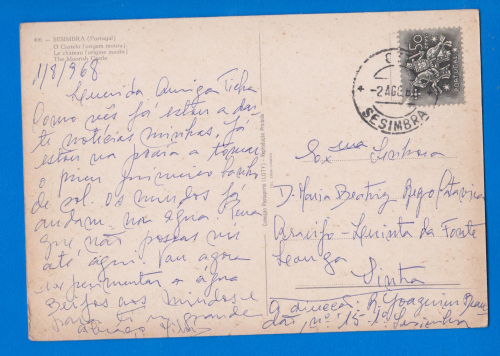 406 — SESIMBRA (Portugal)
O Castelo (origem moura)
Le château (origine maure)
The Moorish Castle
1/8/968
Querida Amiga Ticha
Como vês já estou a dar
te notícias minhas. Já
estou na praia a tomar
o meu primeiro banho
de sol. Os miudos já
andam na água. Pena
que não possas vir
até aqui. Vou agora
experimentar a água
Beijos aos miudos e
para ti um grande
abraço
Colecção Passaporte «LOTY»
50
PORTUGAL
CTT
-2 AGO 68
SESIMBRA
Ex.ma Senhora
D. Maria Beatriz Rego
Araujo - Quinta da Fonte
Sintra
O direcção: R. Joaquim Bran
dão, nº 15 1º Sesimbra